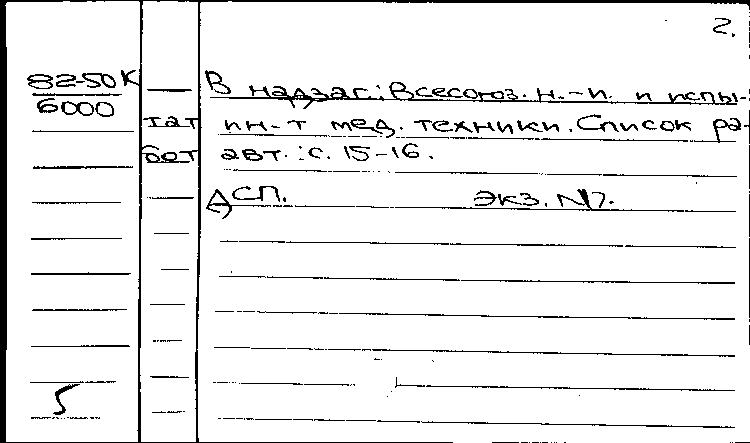 2.
82-50К
6000
В надзаг.: Всесоюз. н.-и. и испы-
тат. ин-т мед. техники. Список ра-
бот авт.: с. 15-16.
ДСП. Экз. N17.
5